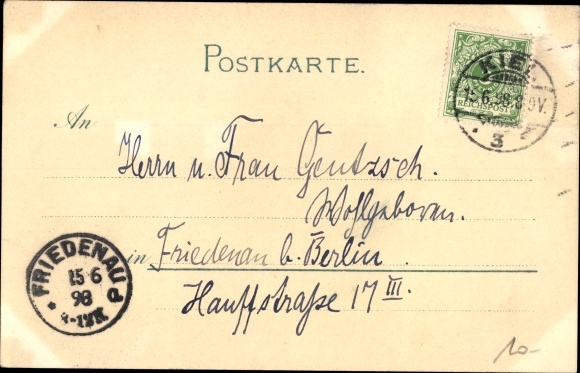 POSTKARTE.
KIEL
15.6.98.8-9V.
3
REICHSPOST
An
Herrn u. Frau Gentzsch.
Wohlgeboren.
in Friedenau b. Berlin
Hauffstraße 17 III.
FRIEDENAU
15 6
98
* d
10-